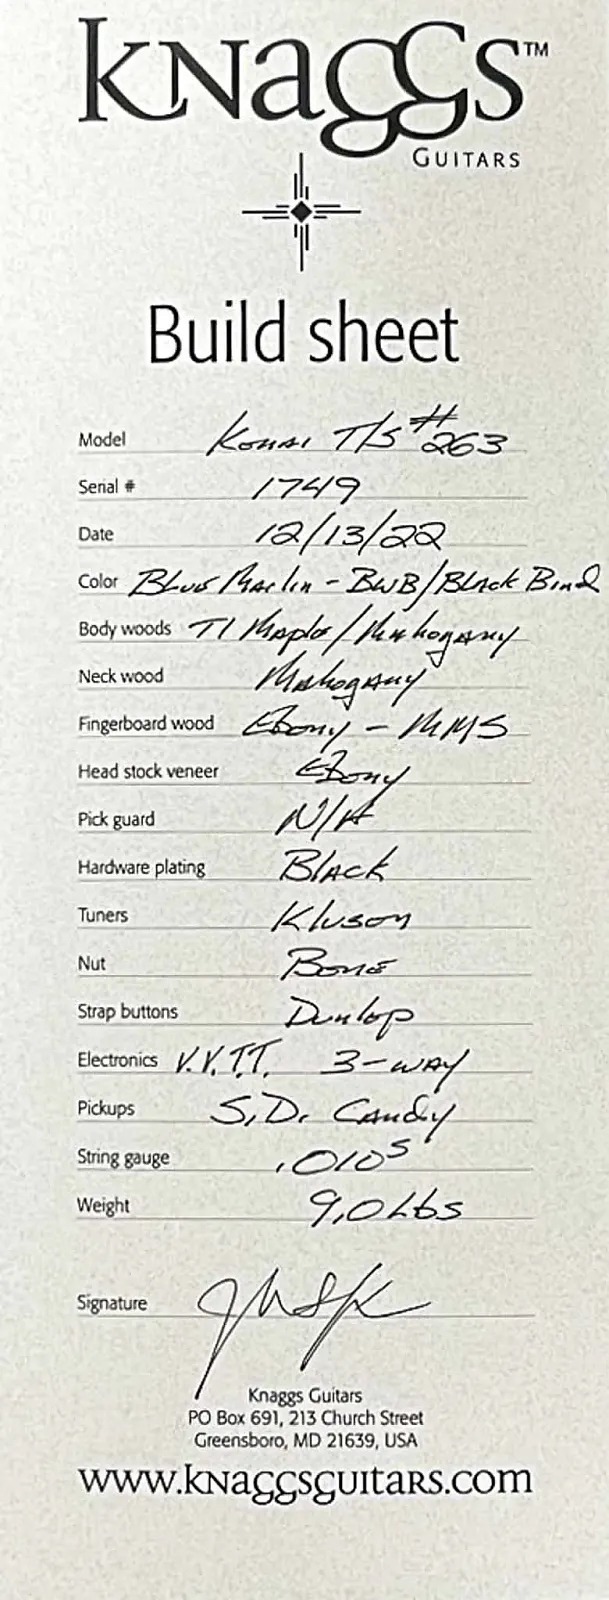 KNaGGS™
GUITARS
Build sheet
Model Kenai T/S #263
Serial # 1749
Date 12/13/22
Color Blue Marlin - BWB/Black Bind
Body woods T1 Maple/Mahogany
Neck wood Mahogany
Fingerboard wood Ebony - MMS
Head stock veneer Ebony
Pick guard N/A
Hardware plating Black
Tuners Kluson
Nut Bone
Strap buttons Dunlop
Electronics V.V.T.T. 3-way
Pickups S.D. Candy
String gauge .010s
Weight 9.0 Lbs
Signature
Knaggs Guitars
PO Box 691, 213 Church Street
Greensboro, MD 21639, USA
www.KNaGGSGUITARS.com